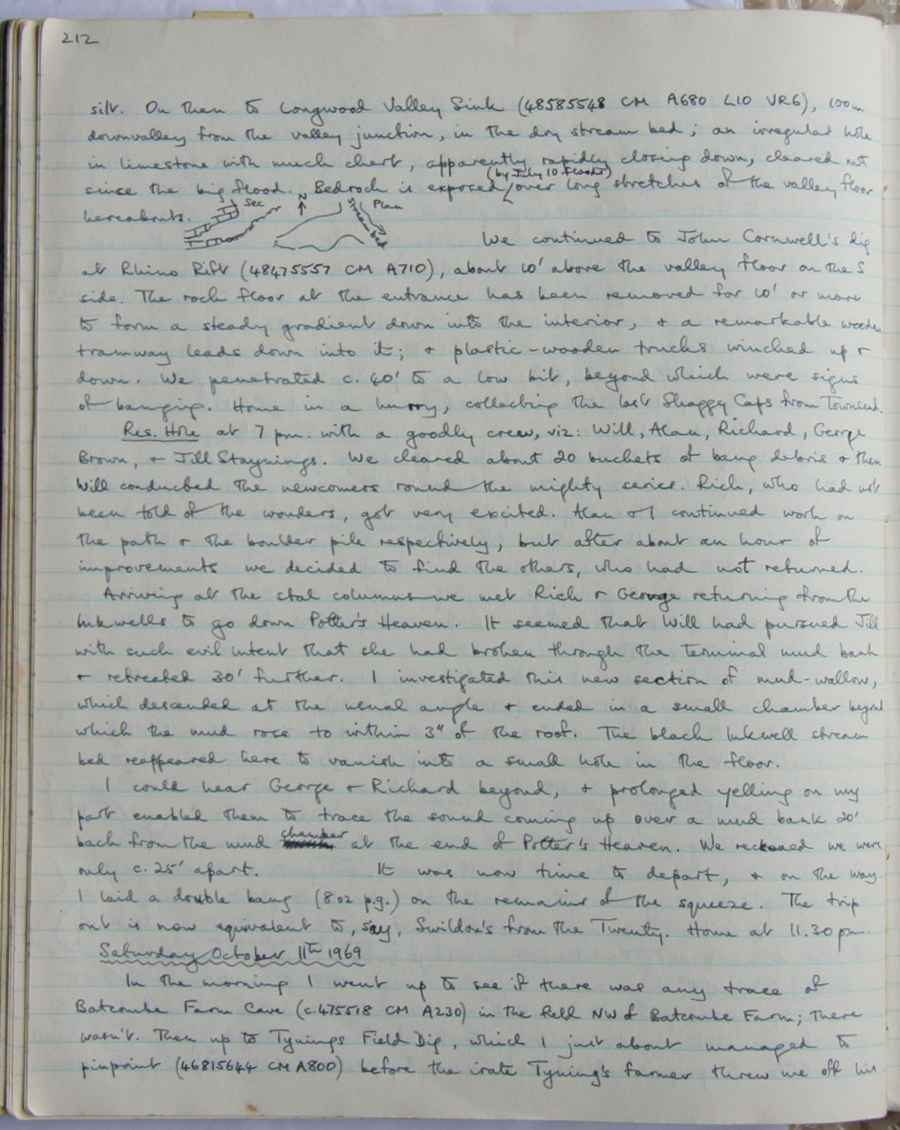 212
silt. On then to Longwood Valley Sink (48585548 CM A680 L10 VR6), 100m
downvalley from the valley junction, in the dry stream bed; an irregular hole
in limestone with much chert, apparently rapidly closing down, cleared out
(by July 10 floods)
since the big flood. Bedrock is exposed over long stretches of the valley floor
hereabouts. Sec N Plan Stream bed
We continued to John Cornwell's dig
at Rhino Rift (48475557 CM A710), about 10' above the valley floor on the S
side. The rock floor at the entrance has been removed for 10' or more
to form a steady gradient down into the interior, + a remarkable wooden
tramway leads down into it; + plastic-wooden trucks winched up +
down. We penetrated c. 60' to a low bit, beyond which were signs
of banging. Home in a hurry, collecting the last Shaggy Caps from Townsend.
Res. Hole at 7 pm. with a goodly crew, viz: Will, Alan, Richard, George
Brown, + Jill Staynings. We cleared about 20 buckets of bang debris + then
Will conducted the newcomers round the mighty series. Rich, who had not
been told of the wonders, got very excited. Alan + I continued work on
the path + the boulder pile respectively, but after about an hour of
improvements we decided to find the others, who had not returned.
Arriving at the stal columns we met Rich + George returning from the
Inkwells to go down Potter's Heaven. It seemed that Will had pursued Jill
with such evil intent that she had broken through the Terminal mud bank
+ retreated 30' further. I investigated this new section of mud-wallow,
which descended at the usual angle + ended in a small chamber beyond
which the mud rose to within 3" of the roof. The black Inkwell stream
bed reappeared here to vanish into a small hole in the floor.
I could hear George + Richard beyond, + prolonged yelling on my
part enabled them to trace the sound coming up over a mud bank 20'
back from the mud chamber at the end of Potter's Heaven. We reckoned we were
only c. 25' apart. It was now time to depart, + on the way
I laid a double bang (8oz p.g.) on the remains of the squeeze. The trip
out is now equivalent to, say, Swildon's from the Twenty. Home at 11.30 pm.
Saturday October 11th 1969
In the morning I went up to see if there was any trace of
Batcombe Farm Cave (c.475518 CM A230) in the field NW of Batcombe Farm; there
wasn't. Then up to Tynings Field Dig, which I just about managed to
pinpoint (46815644 CM A800) before the irate Tyning's farmer threw me off his